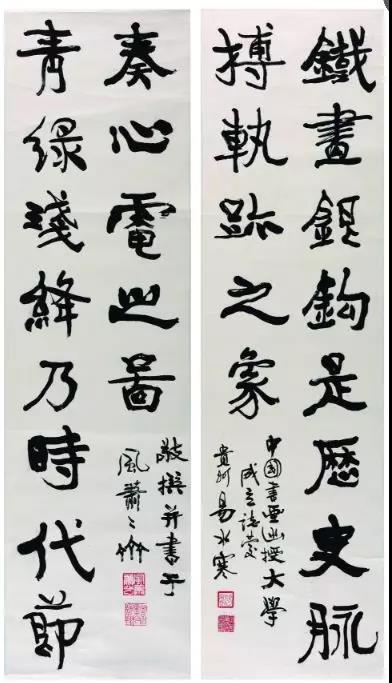 鐵畫銀鈎是歷史脈
搏軌跡之象
中国書画函授大學
成立誌慶
貴州易水寒
青綠淺絳乃時代節
奏心電之圖
敬撰并書于
風蕭々